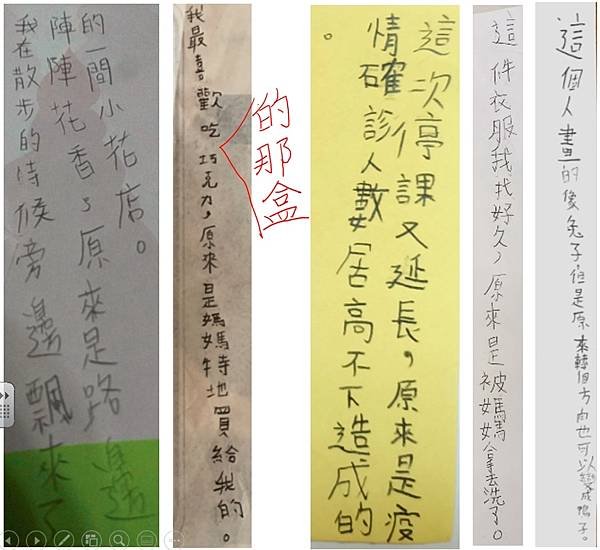 我在散步的時候旁邊飄來了
陣陣花香，原來是路邊
的一間小花店。
我最喜歡吃巧克力，原來是媽媽特地買給我的。
的那盒
這次停課又延長，原來是疫
情確診人數居高不下造成的
。
這件衣服我找好久，原來是被媽媽拿去洗了。
這個人畫的像兔子但是原來轉個方向也可以變成鴨子。